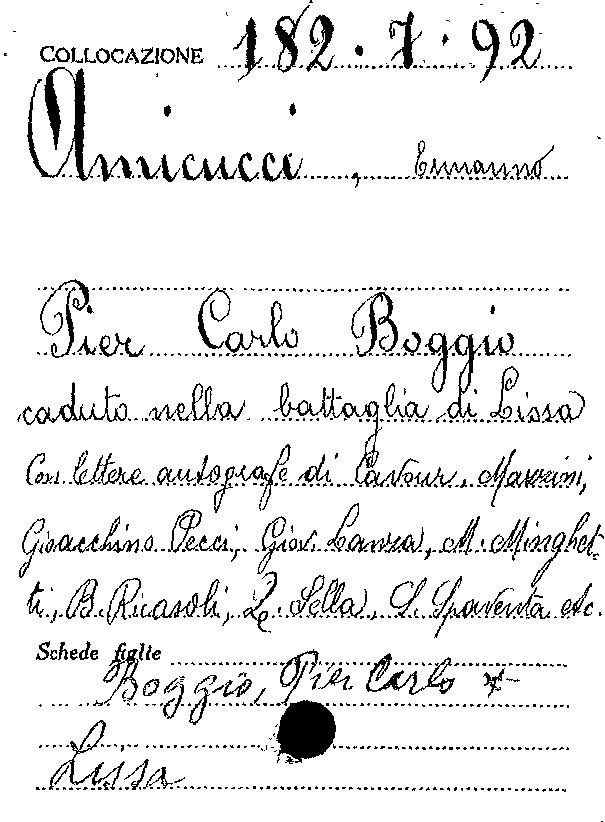 COLLOCAZIONE 182.7.92
Amicucci, Ermanno
Pier Carlo Boggio
caduto nella battaglia di Lissa
Con lettere autografe di Cavour, Mazzini,
Gioacchino Pecci, Giov. Lanza, M. Minghet-
ti, B. Ricasoli, Q. Sella, S. Spaventa etc.
Schede figlie
Boggio, Pier Carlo *
Lissa